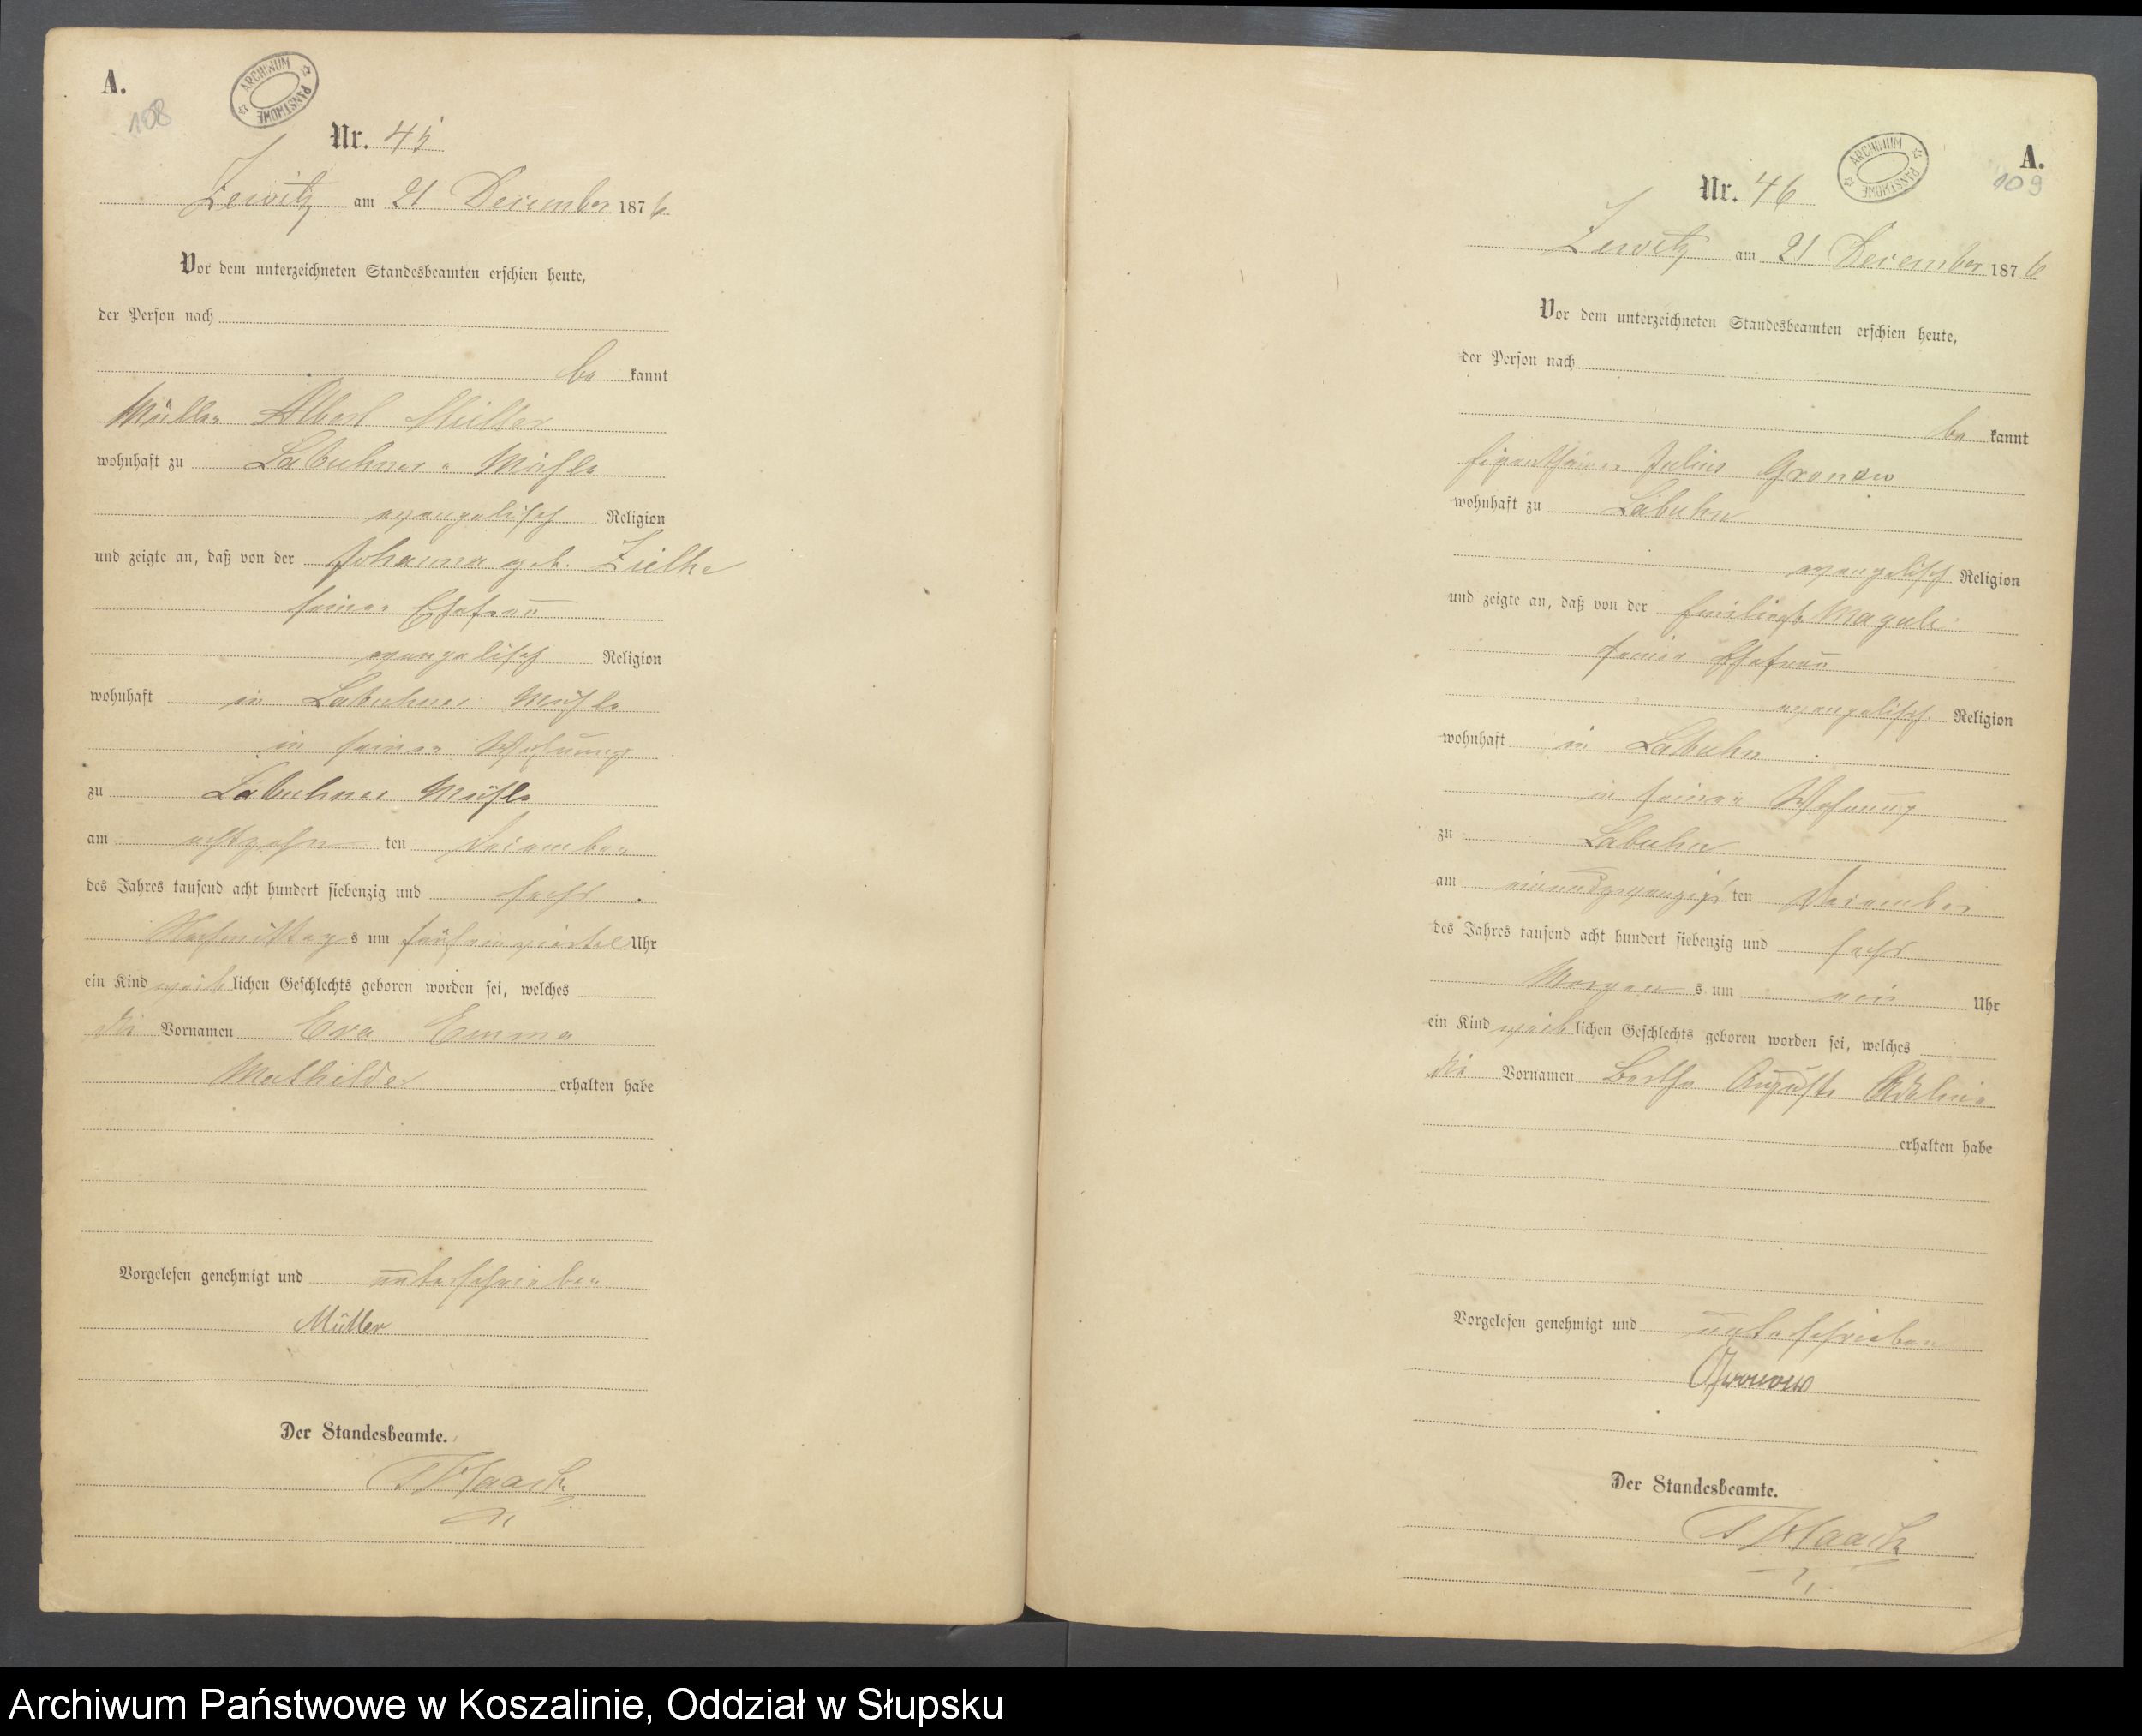 A.
108
ARCHIWUM PAŃSTWOWE
Nr. 45
Zewitz am 21 December 1876
Vor dem unterzeichneten Standesbeamten erschien heute,
der Person nach
be kannt
Müller Albert Müller
wohnhaft zu Labuhner Mühle
evangelisch Religion
und zeigte an, daß von der Johanna geb. Zielke
seiner Ehefrau
evangelisch Religion
wohnhaft in Labuhner Mühle
in seiner Wohnung
zu Labuhner Mühle
am achtzehn ten December
des Jahres tausend acht hundert siebenzig und sechs
Nachmittag s um fünfeinviertel Uhr
ein Kind weib lichen Geschlechts geboren worden sei, welches
die Vornamen Eva Emma
Mathilde erhalten habe
Vorgelesen genehmigt und unterschrieben
Müller
Der Standesbeamte.
Haack
A.
109
ARCHIWUM PAŃSTWOWE
Nr. 46
Zewitz am 21 December 1876
Vor dem unterzeichneten Standesbeamten erschien heute,
der Person nach
be kannt
Eigenthümer Julius Gronow
wohnhaft zu Labuhn
evangelisch Religion
und zeigte an, daß von der
seiner Ehefrau
evangelisch Religion
wohnhaft in Labuhn
in seiner Wohnung
zu Labuhn
am einundzwanzig ten December
des Jahres tausend acht hundert siebenzig und sechs
Morgen s um ein Uhr
ein Kind weib lichen Geschlechts geboren worden sei, welches
die Vornamen Bertha Auguste
erhalten habe
Vorgelesen genehmigt und unterschrieben
Gronow
Der Standesbeamte.
Haack
Archiwum Państwowe w Koszalinie, Oddział w Słupsku